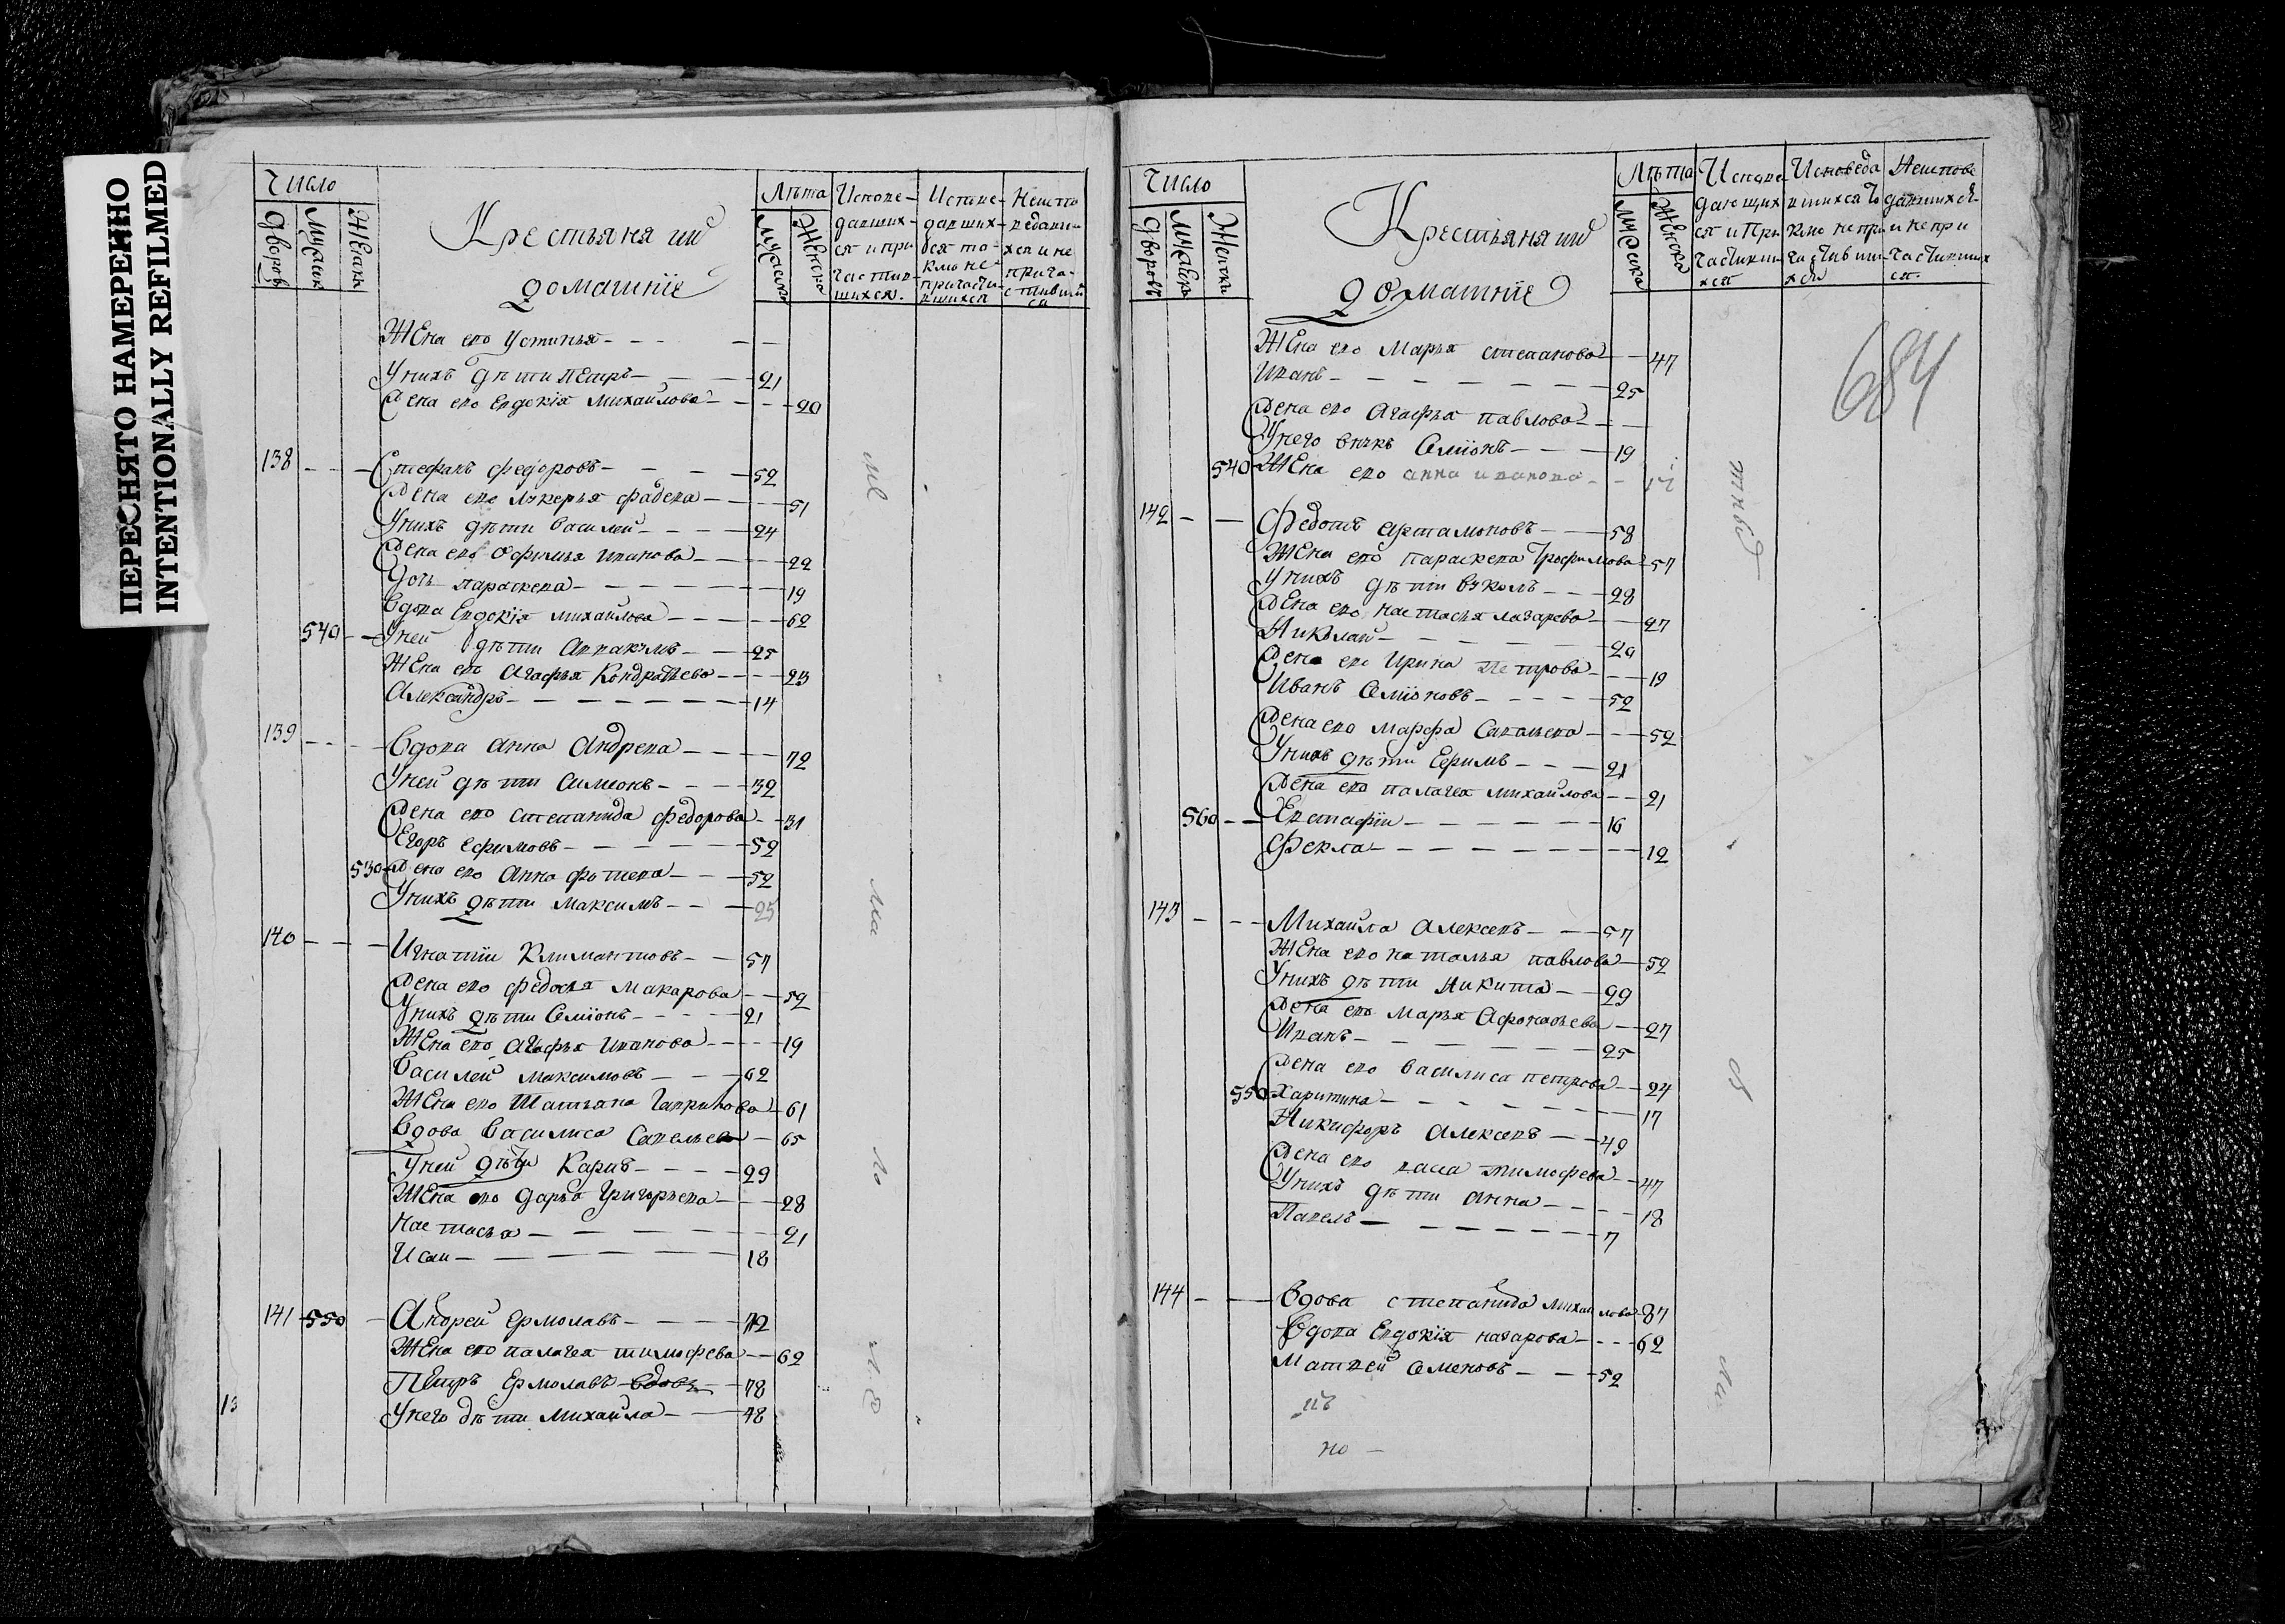 ПЕРЕСНЯТО НАМЕРЕННО
INTENTIONALLY REFILMED
Число
Дворовъ
Мужеск
Женск
Крестьяня ии
домашніе
Лѣта
Мужеска
Женска
Испове-
давших-
ся и при
частив-
шихся.
Испове-
давших-
ся то-
кмо не
причасти-
вшихся
Неиспо
ведавши
хся и не
прича-
стивши
ся
Жена его Устинья
У нихъ дѣти Петръ 21
Жена его Евдокія Михайлова 20
138 Стефанъ Федоровъ 52
Жена его Лукерья Фадева 51
У нихъ дѣти Василей 24
Жена его Офимья Иванова 22
Дочь Параскева 19
Вдова Евдокія Михайлова 62
540 У ней дѣти Аввакумъ 25
Жена его Агафья Кондратьева 23
Александръ 14
139 Вдова Анна Андрева 72
У ней дѣти Симионъ 32
Жена его Степанида Федорова 31
Егоръ Ефимовъ 52
530 Жена его Анна Фотиева 52
У нихъ дѣти Максимъ 25
140 Игнатіи Климантовъ 57
Жена его Федосья Макарова 52
У нихъ дѣти Семіонъ 21
Жена его Агафья Иванова 19
Василей Максимовъ 62
Жена его Татьяна Гаврилова 61
Вдова Василиса Савельева 65
У ней дѣти Карпъ 29
Жена его Дарья Григорьева 28
Настасья 21
Исаи 18
141 550 Андрей Ермолавъ 72
Жена его Палагея Тимофева 62
Петръ Ермолавъ вдовъ 78
У него дѣти Михайла 48
13
Число
Дворовъ
Мужеск
Женски
Крестьяня ии
домашніе
Лѣта
Мужска
Женска
Испове
дающих
ся и При
частивши
хся
Исповеда
вшихся То
кмо не при
частивши
хся
Неиспове
давшихся
и не при
частивших
ся.
684
Жена его Марья Степанова 47
Иванъ 25
Жена его Агафья Павлова
У него внукъ Семіонъ 19
540 Жена его Анна Иванова
142 Федотъ Артамоновъ 58
Жена его Параскева Трофимова 57
У нихъ дѣти Вуколъ 28
Жена его Настасья Лазарева 27
Николай 20
Жена его Ирина Петрова 19
Иванъ Семіоновъ 52
Жена его Марфа Савальева 52
У нихъ дѣти Ефимъ 21
Жена его Палагея Михайлова 21
560 Евстафіи 16
Фекла 12
143 Михайла Алексевъ 57
Жена его Наталья Павлова 52
У нихъ дѣти Никита 29
Жена его Марья Афонасьева 27
Иванъ 25
Жена его Василиса Петрова 24
550 Харитина 17
Никифоръ Алексевъ 49
Жена его Васса Тимофева 47
У нихъ дѣти Анна 18
Павелъ 7
144 Вдова Степанида Михаилова 87
Вдова Евдокія Назарова 62
Матвей Семеновъ 52
но